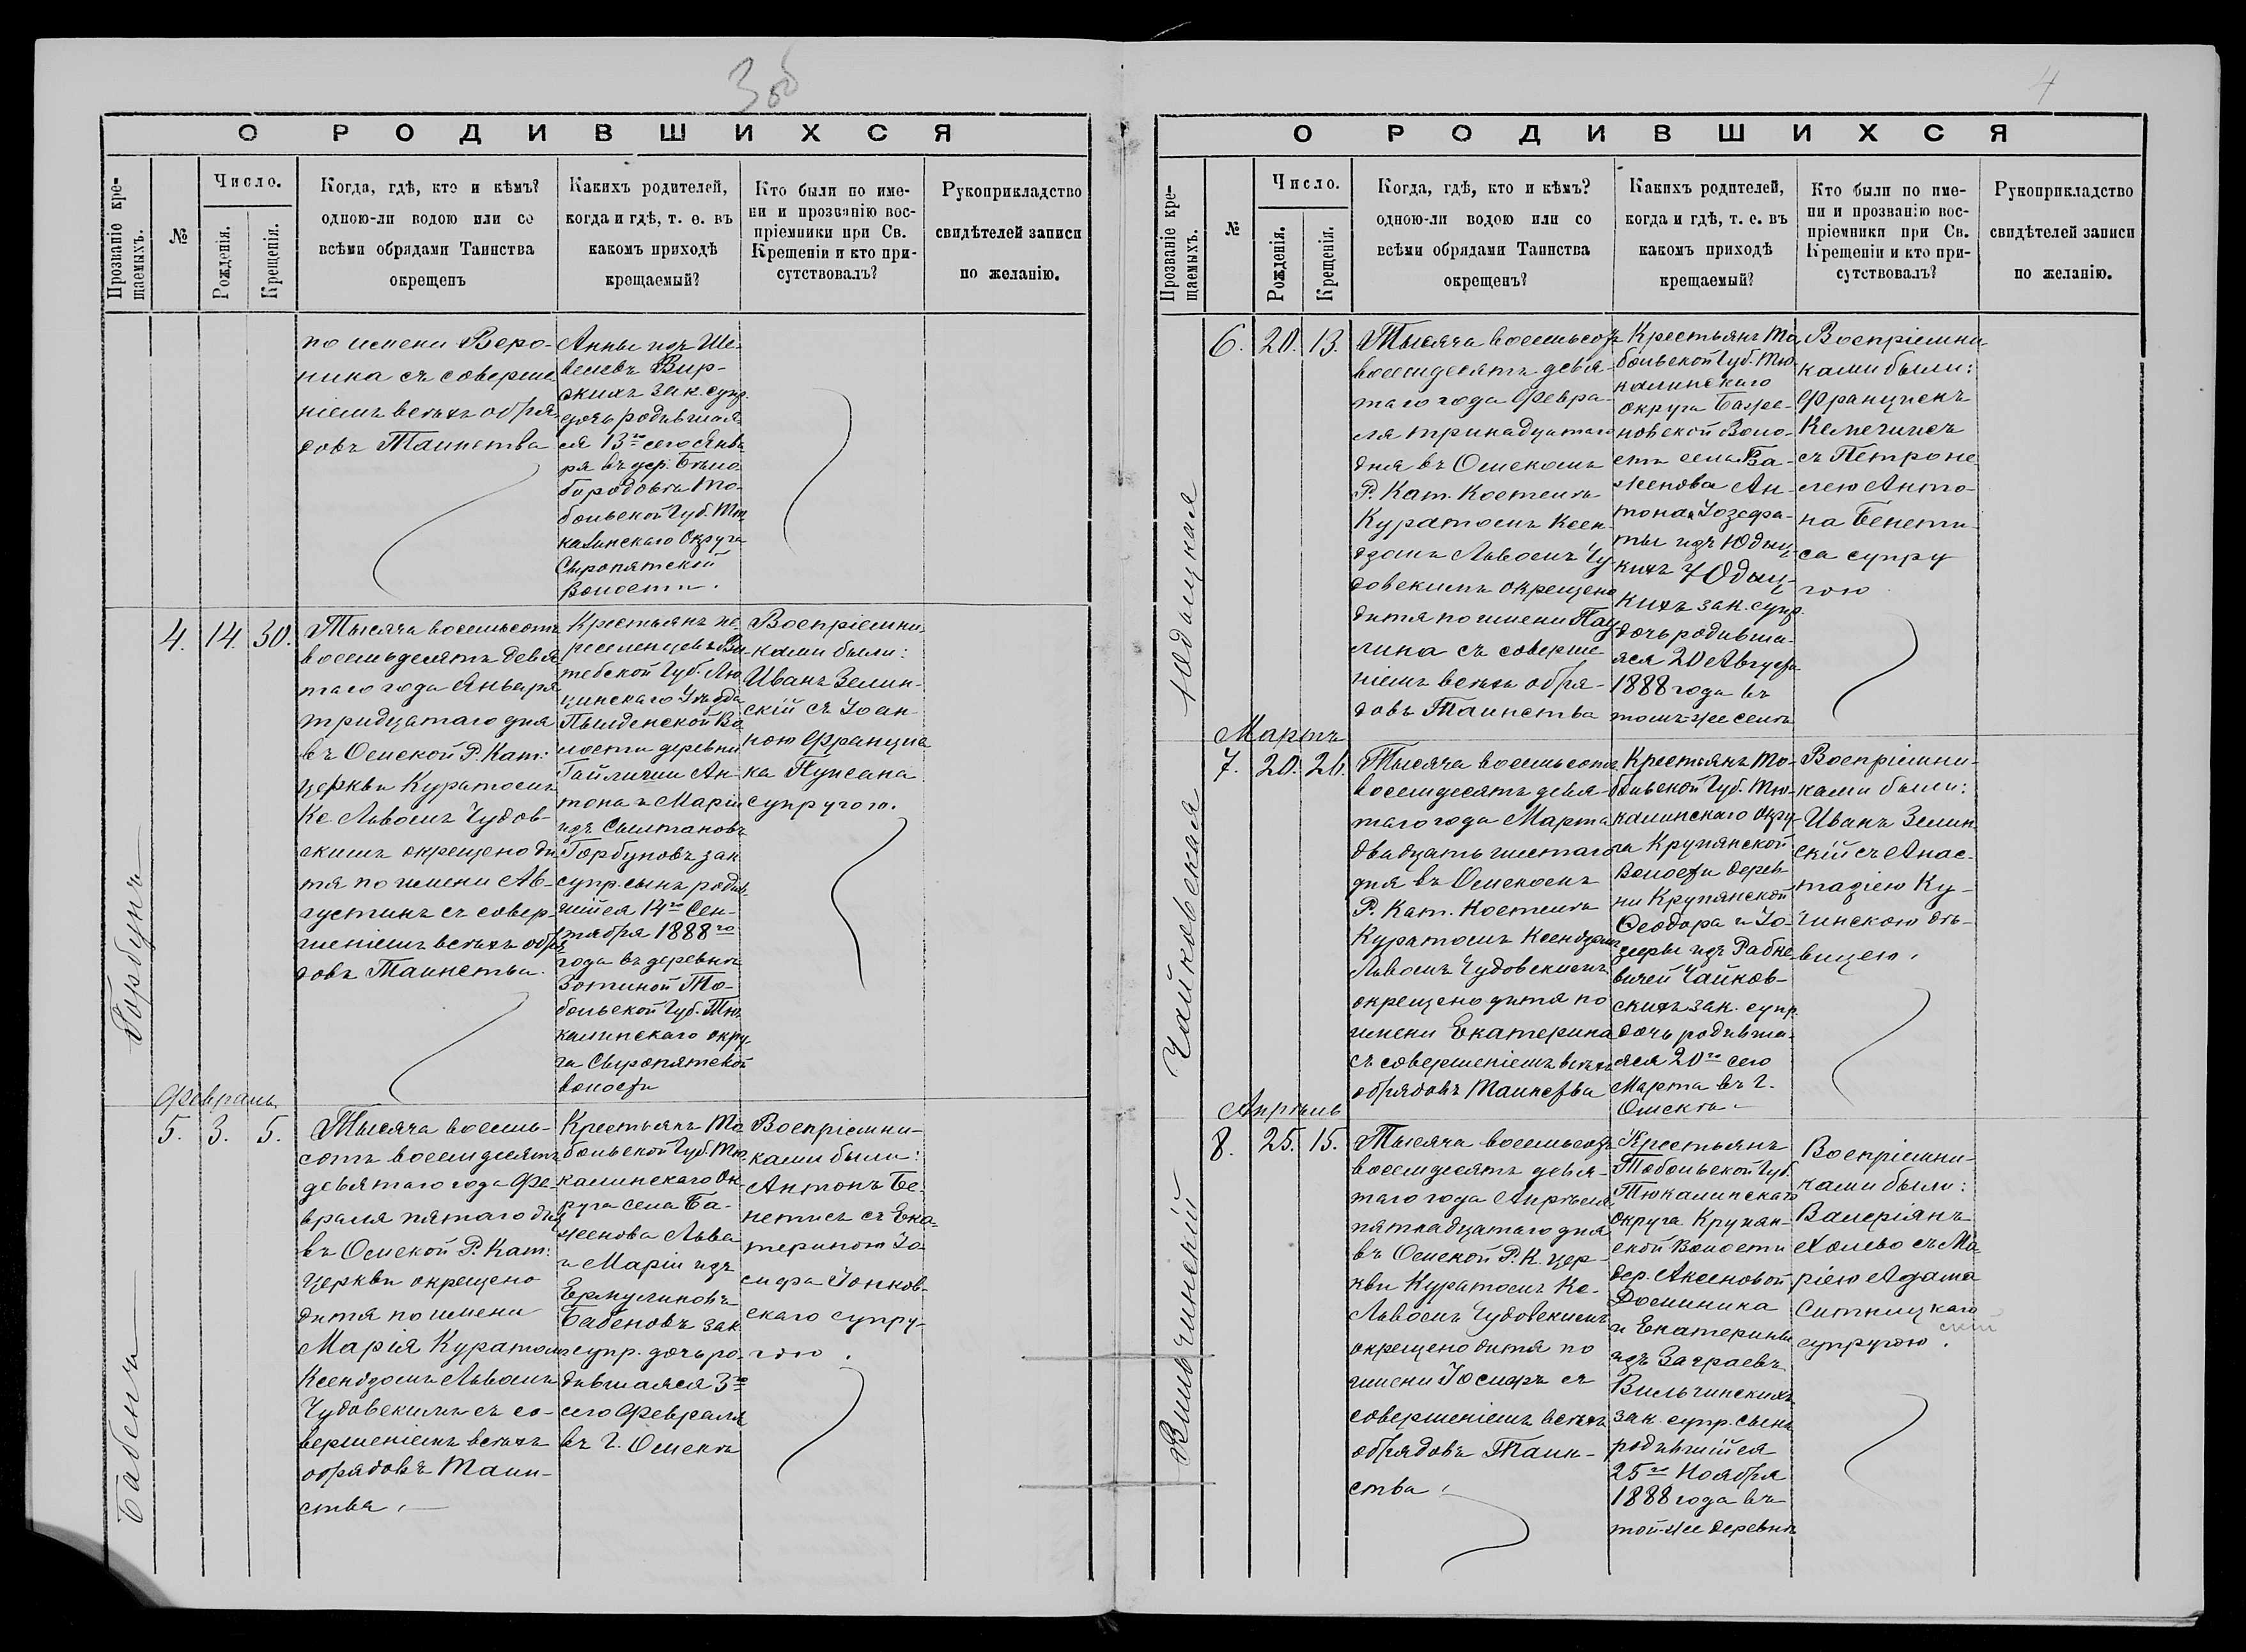 3 об
О РОДИВШИХСЯ
Прозваніе кре-
щаемыхъ.
№
Число.
Рожденія.
Крещенія.
Когда, гдѣ, кто и кѣмъ?
одною-ли водою или со
всѣми обрядами Таинства
окрещенъ
Какихъ родителей,
когда и гдѣ, т. е. въ
какомъ приходѣ
крещаемый?
Кто были по име-
ни и прозванію вос-
пріемники при Св.
Крещеніи и кто при-
сутствовалъ?
Рукоприкладство
свидѣтелей записи
по желанію.
по имени Веро-
ника съ соверше
ніемъ всѣхъ обря
довъ Таинства
Анны изъ Ше-
велевъ Вир-
скихъ зак. супр.
дочь родившая
ся 13го сего Янва
ря въ дер. Бѣло
бородовкѣ То-
больской Губ. Тю
калинскаго Округа
Сыропятской
Волости.
Горбунъ
4. 14. 30.
Тысяча восемьсотъ
восемьдесятъ девя
таго года Января
тридцатаго дня
въ Омской Р. Кат.
церкви Куратомъ
Кс. Львомъ Чудов-
скимъ окрещено ди
тя по имени Ав-
густинъ съ совер-
шеніемъ всѣхъ обря
довъ Таинства.
Крестьянъ пе-
реселенцевъ Ви-
тебской Губ. Лю
цинскаго Уѣзда
Пылденской Во
лости деревни
Гайличи Ан-
тона и Маріи
изъ Султановъ
Горбуновъ зак
супр. сынъ родив-
шійся 14го Сен-
тября 1888го
года въ деревнѣ
Зотиной То-
больской Губ. Тю
калинскаго окру
га Сыропятской
волости
Воспріемни-
ками были:
Иванъ Зелин-
скій съ Іоан-
ною Францис
ка Пупсана
супругою.
Февраль
Бабенъ
5. 3. 5.
Тысяча восемь-
сотъ восемдесятъ
девятаго года Фе-
враля пятаго дня
въ Омской Р. Кат:
церкви окрещено
дитя по имени
Марія Куратомъ
Ксендзомъ Львомъ
Чудовскимъ съ со-
вершеніемъ всѣхъ
обрядовъ Таин-
ства.
Крестьянъ То
больской Губ. Тю-
калинскаго Ок-
руга села Ба-
женова Льва
и Маріи изъ
Ермулиновъ
Бабеновъ зак.
супр. дочь ро-
дившаяся 3го
сего Февраля
въ г. Омскѣ
Воспріемни-
ками были:
Антонъ Бе-
нетисъ съ Ека-
териною Іо-
сифа Іонков-
скаго супру-
гою.
4
О РОДИВШИХСЯ
Прозваніе кре-
щаемыхъ.
№
Число.
Рожденія.
Крещенія.
Когда, гдѣ, кто и кѣмъ?
одною-ли водою или со
всѣми обрядами Таинства
окрещенъ?
Какихъ родителей,
когда и гдѣ, т. е. въ
какомъ приходѣ
крещаемый?
Кто были по име-
ни и прозванію вос-
пріемники при Св.
Крещеніи и кто при-
сутствовалъ?
Рукоприкладство
свидѣтелей записи
по желанію.
Юдыцкая
6. 20. 13.
Тысяча восемьсотъ
восемдесятъ девя-
таго года Февра-
ля тринадцатаго
дня въ Омскомъ
Р. Кат. Костелѣ
Куратомъ Ксен-
дзомъ Львомъ Чу-
довскимъ окрещено
дитя по имени Пау
лина съ соверше
ніемъ всѣхъ обря-
довъ Таинства
Крестьянъ То
больской Губ. Тю-
калинскаго
округа Баже-
новской Воло-
сти села Ба-
женова Ан-
тона и Іозефа-
ты изъ Юдыц-
кихъ Юдыц-
кихъ зак. супр.
дочь родивша-
яся 20 Августа
1888 года въ
томъ-же селѣ
Воспріемни
ками были:
Францискъ
Кемечисъ
съ Петроне
лею Анто-
на Бенети-
са супру
гою
Мартъ
Чайковская
7. 20. 26.
Тысяча восемьсотъ
восемдесятъ девя-
таго года Марта
двадцать шестаго
дня въ Омскомъ
Р. Кат. Костелѣ
Куратомъ Ксендзомъ
Львомъ Чудовскимъ
окрещено дитя по
имени Екатерина
съ совершеніемъ всѣхъ
обрядовъ Таинства
Крестьянъ То-
больской Губ. Тю-
калинскаго Окру-
га Крупянской
Волости дерев-
ни Крупянской
Ѳеодора и Іо-
зефы изъ Рабце
вичей Чайков-
скихъ зак. супр
дочь родивша-
яся 20го сего
Марта въ г.
Омскѣ.
Воспріемни-
ками были:
Иванъ Зелин
скій съ Анас-
тазіею Ку-
чинскою дѣ-
вицею.
Апрѣль
Вильчинскій
8. 25. 15.
Тысяча восемьсотъ
восемдесятъ девя-
таго года Апрѣля
пятнадцатаго дня
въ Омской Р. К. цер-
кви Куратомъ Кс.
Львомъ Чудовскимъ
окрещено дитя по
имени Іосифъ съ
совершеніемъ всѣхъ
обрядовъ Таин-
ства.
Крестьянъ
Тобольской Губ.
Тюкалинскаго
округа Крупян-
ской Волости
дер. Аксеновой
Доминика
и Екатерины
изъ Заграевъ
Вильчинскихъ
зак. супр. сынъ
родившійся
25го Ноября
1888 года въ
той-же деревнѣ
Воспріемни-
ками были:
Валеріянъ
Хомво съ Ма
ріею Адама
Ситницкаго
скій
супругою.